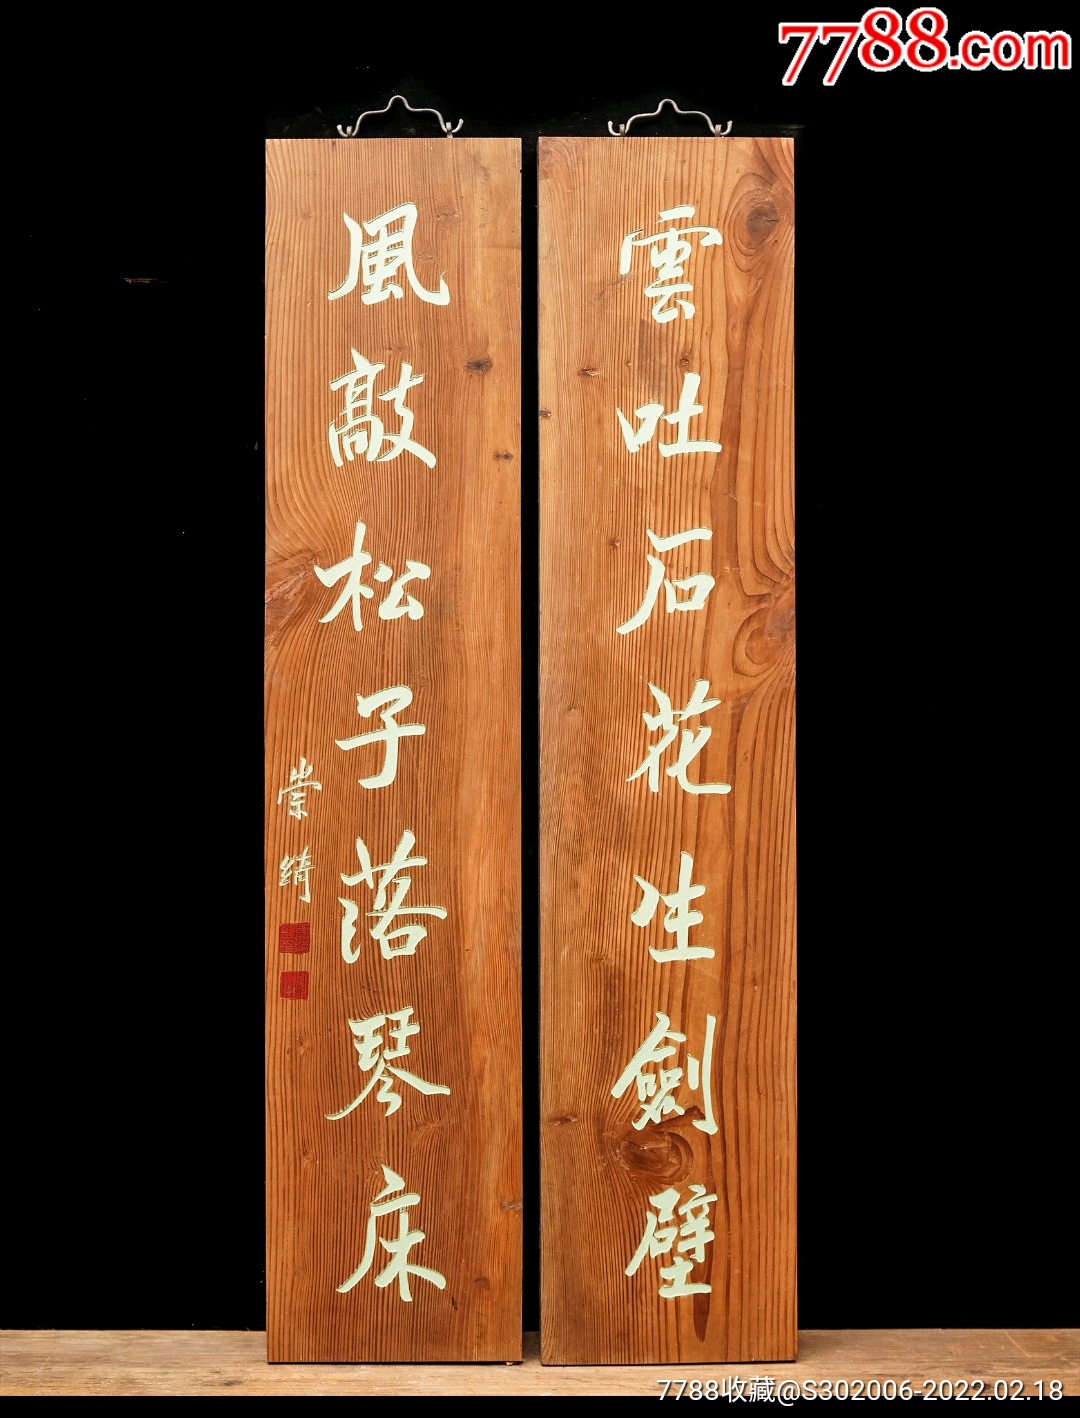 7788.com
雲吐石花生劍壁
風敲松子落琴床
崇綺
7788收藏@S302006-2022.02.18